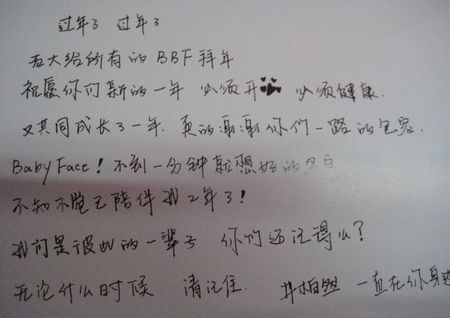 过年了 过年了
五大给所有的BBF拜年
祝愿你们新的一年 必须开 必须健康.
又共同成长了一年. 真的谢谢你们一路的包容.
Baby Face! 不到一分钟就想好的名字
不知不觉已陪伴我2年了!
我们是彼此的一辈子 你们还记得么?
无论什么时候 请记住. 井柏然 一直在你身边